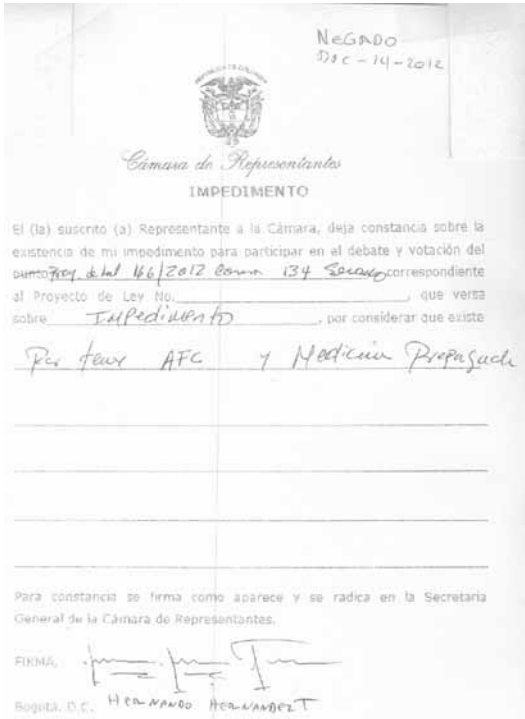 NeGADO
Dic-14-2012
REPUBLICA DE COLOMBIA
Cámara de Representantes
IMPEDIMENTO
El (la) suscrito (a) Representante a la Cámara, deja constancia sobre la
existencia de mi impedimento para participar en el debate y votación del
punto Proy. de Ley 166/2012 134 Senado correspondiente
al Proyecto de Ley No. , que versa
sobre Impedimento , por considerar que existe
Por tener AFC y Medicina Prepagada
Para constancia se firma como aparece y se radica en la Secretaria
General de la Cámara de Representantes.
FIRMA,
Bogotá, D.C. HERNANDO HERNANDEZ T